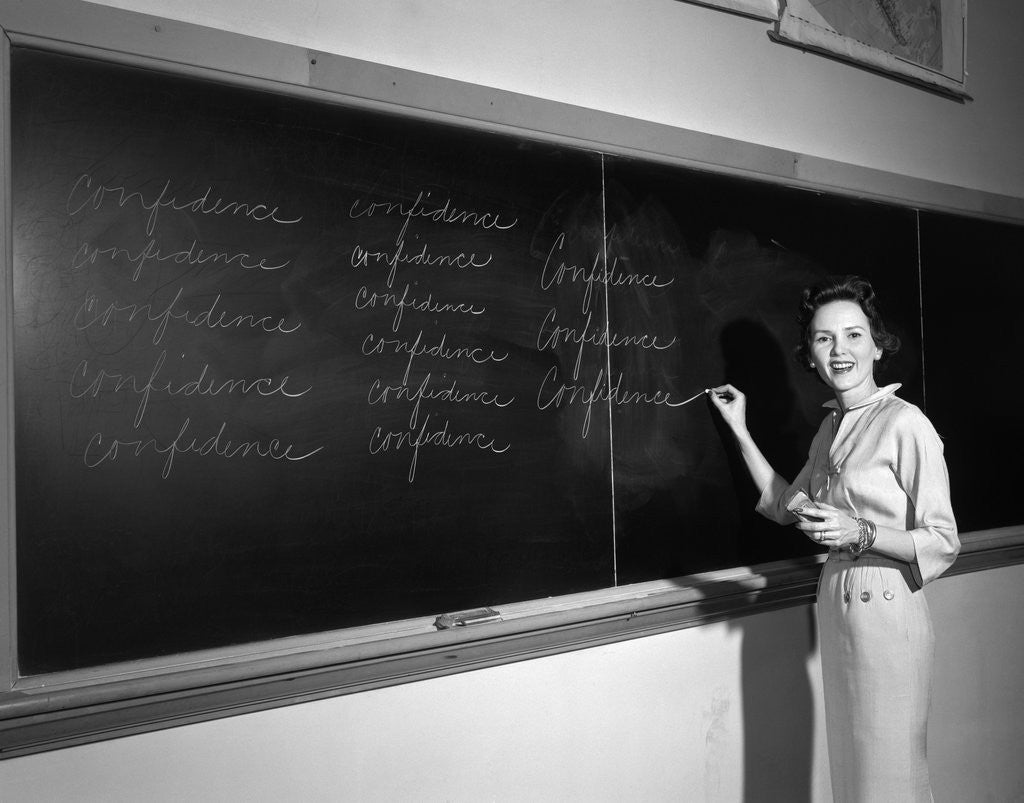 confidence
confidence
confidence
confidence
confidence
confidence
confidence
confidence
confidence
confidence
confidence
Confidence
Confidence
Confidence